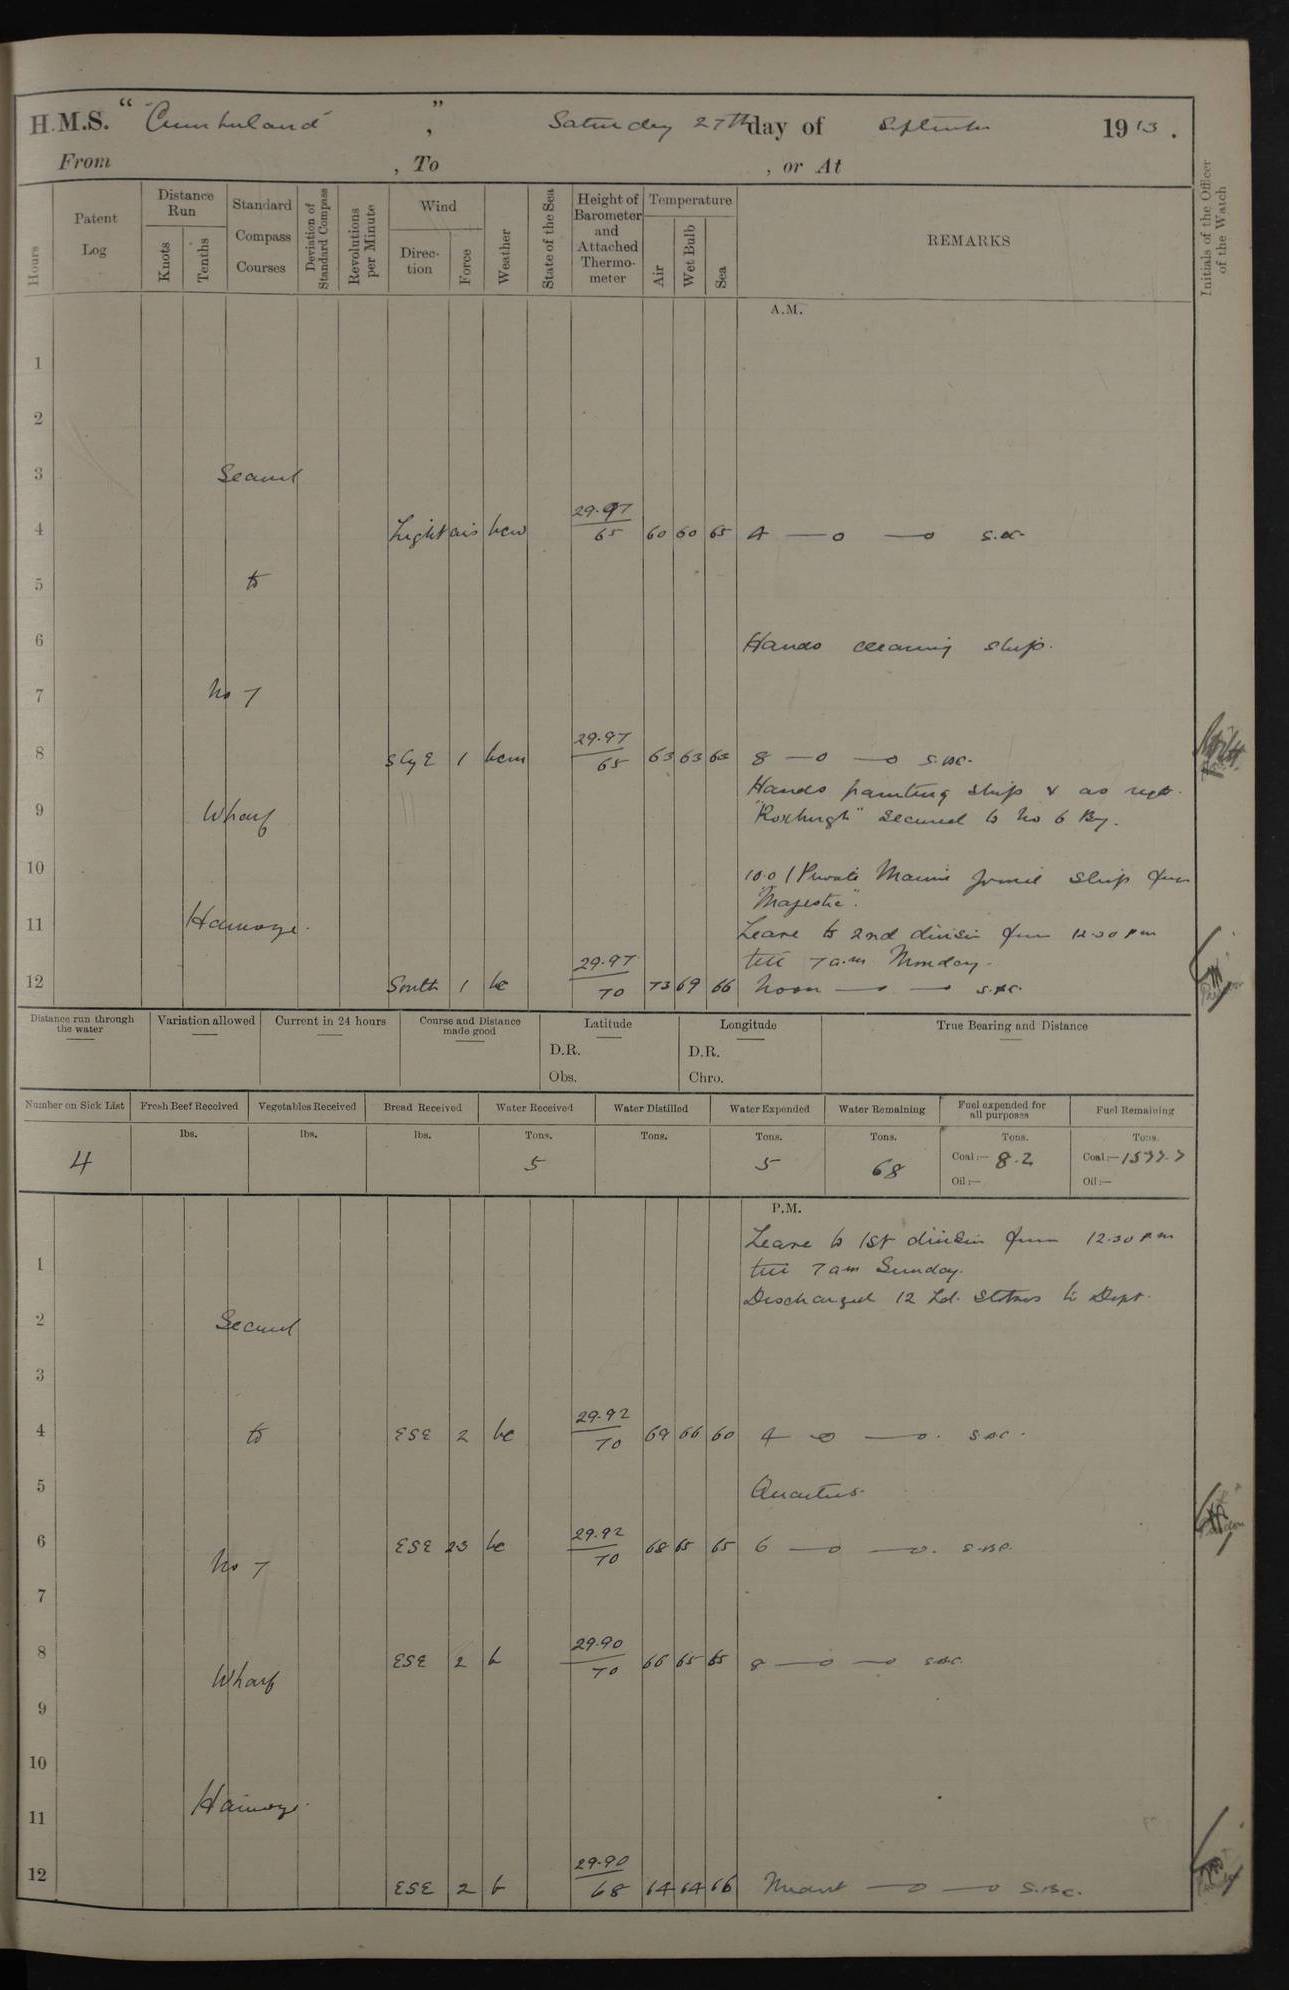 H.M.S. "Cumberland", Saturday 27th day of September 1913.
From , To , or At
Hours
Patent Log
Distance Run
Knots
Tenths
Standard Compass Courses
Deviation of Standard Compass
Revolutions per Minute
Wind
Direction
Force
Weather
State of the Sea
Height of Barometer and Attached Thermometer
Temperature
Air
Wet Bulb
Sea
REMARKS
Initials of the Officer of the Watch
A.M.
1
2
3 Secured
4 Light airs bcw 29.97/65 60 60 65 4 —o —o
5 to
6 Hands cleaning ship.
7 No 7
8 SbyE 1 bcm 29.97/65 63 63 63 8 —o —o S.BC.
Hands painting ship & as reqd.
9 Wharf "Roxburgh" secured to No 6 By.
10 10.0 1 Private Marine joined ship from
"Majestic".
11 Hamoaze. Leave to 2nd division from 12.30 pm
till 7 a.m Monday.
12 South 1 bc 29.97/70 73 69 66 Noon — — S.BC.
Distance run through the water
Variation allowed
Current in 24 hours
Course and Distance made good
Latitude
D.R.
Obs.
Longitude
D.R.
Chro.
True Bearing and Distance
Number on Sick List
Fresh Beef Received
Vegetables Received
Bread Received
Water Received
Water Distilled
Water Expended
Water Remaining
Fuel expended for all purposes
Fuel Remaining
lbs. lbs. lbs. Tons. Tons. Tons. Tons. Tons. Tons.
4 5 5 68 Coal:— 8.2 Coal:—
Oil:— Oil:—
P.M.
Leave to 1st division from 12.30 pm
1 till 7 am Sunday.
Discharged 12 Ld. Stokers to Dept.
2 Secured
3
4 to ESE 2 bc 29.92/70 69 66 60 4 —o —o. S.BC.
5 Quarters.
6 No 7 ESE 23 bc 29.92/70 68 65 65 6 —o —o. S.BC.
7
8 Wharf ESE 2 b 29.90/70 66 65 65 8 —o —o S.BC.
9
10
11 Hamoaze.
12 ESE 2 b 29.90/68 64 64 66 Midnt —o —o S.BC.